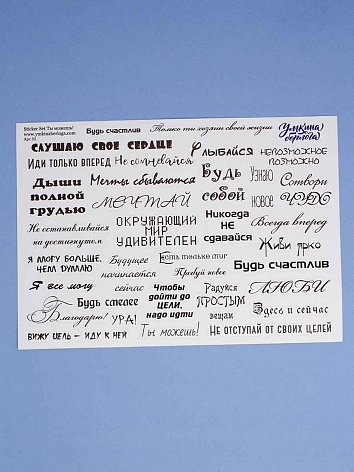 Sticker Set Ты можешь!
www.ymkinaberloga.ru
Будь счастлив
Только ты хозяин своей жизни
Умкина берлога
СЛУШАЮ СВОЕ СЕРДЦЕ
Улыбайся
НЕВОЗМОЖНОЕ
ВОЗМОЖНО
Иди только вперед
Не сомневайся
Дыши
полной
грудью
Мечты сбываются
Будь
собой
Узнаю
новое
Сотвори
ЧУДО
МЕЧТАЙ
Не останавливайся
на достигнутом
ОКРУЖАЮЩИЙ
МИР
УДИВИТЕЛЕН
Никогда
НЕ
сдавайся
Всегда вперед
Живи ярко
Я МОГУ БОЛЬШЕ,
ЧЕМ ДУМАЮ
Будущее
начинается
сейчас
Есть только миг
Пробуй новое
Будь счастлив
Я все могу
Чтобы
дойти до
цели,
надо идти
Радуйся
ПРОСТЫМ
вещам
ЛЮБИ
Будь смелее
Благодарю!
УРА!
Здесь и сейчас
ВИЖУ ЦЕЛЬ – ИДУ К НЕЙ
Ты можешь!
НЕ ОТСТУПАЙ ОТ СВОИХ ЦЕЛЕЙ